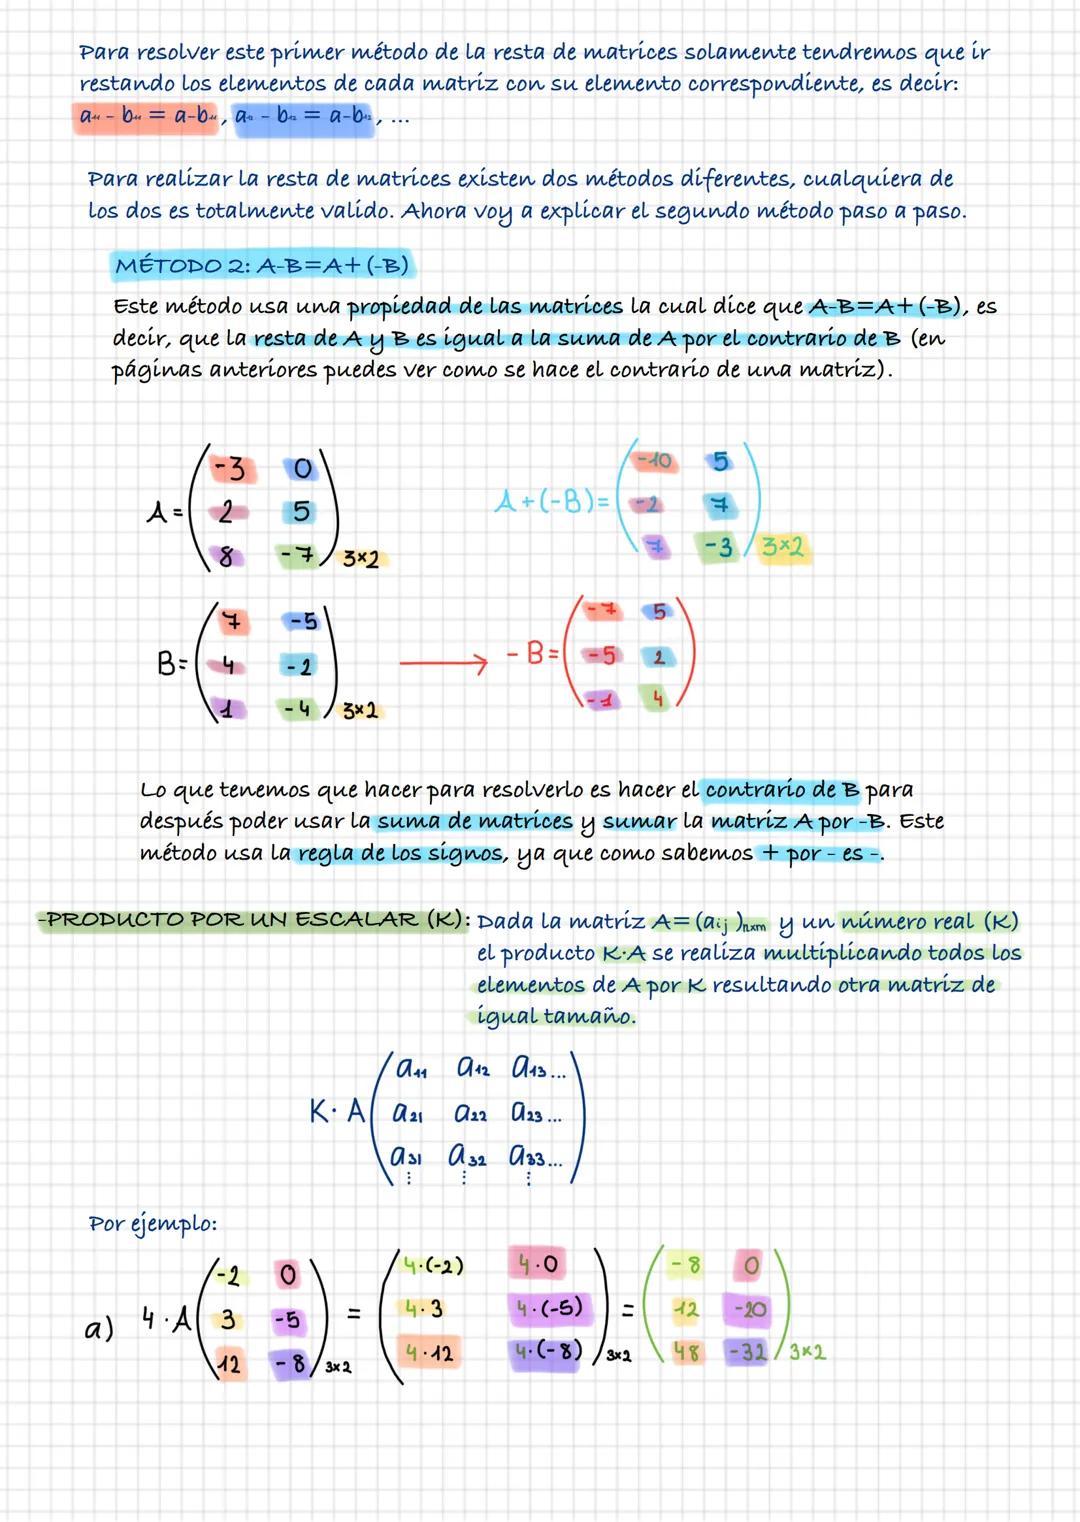 Para resolver este primer método de la resta de matrices solamente tendremos que ir
restando los elementos de cada matriz con su elemento correspondiente, es decir:
a₁₁ - b₁₁ = a-b₁₁, a₁₂ - b₁₂ = a-b₁₂, ...
Para realizar la resta de matrices existen dos métodos diferentes, cualquiera de
los dos es totalmente valido. Ahora voy a explicar el segundo método paso a paso.
MÉTODO 2: A-B=A+(-B)
Este método usa una propiedad de las matrices la cual dice que A-B=A+(-B), es
decir, que la resta de A y B es igual a la suma de A por el contrario de B (en
páginas anteriores puedes ver como se hace el contrario de una matriz).
-3 0 -10 5
A= 2 5 A+(-B)= -2 7
8 -7 3×2 7 -3 3×2
7 -5 -7 5
B= 4 -2 → -B= -5 2
1 -4 3×2 -1 4
Lo que tenemos que hacer para resolverlo es hacer el contrario de B para
después poder usar la suma de matrices y sumar la matriz A por -B. Este
método usa la regla de los signos, ya que como sabemos + por - es -.
-PRODUCTO POR UN ESCALAR (K): Dada la matriz A=(aij)nxm y un número real (K)
el producto K·A se realiza multiplicando todos los
elementos de A por K resultando otra matriz de
igual tamaño.
a₁₁ a₁₂ a₁₃...
K·A a₂₁ a₂₂ a₂₃...
a₃₁ a₃₂ a₃₃...
⋮ ⋮ ⋮
Por ejemplo:
-2 0 4·(-2) 4·0 -8 0
a) 4·A 3 -5 = 4·3 4·(-5) = 12 -20
12 -8 3×2 4·12 4·(-8) 3×2 48 -32 3×2